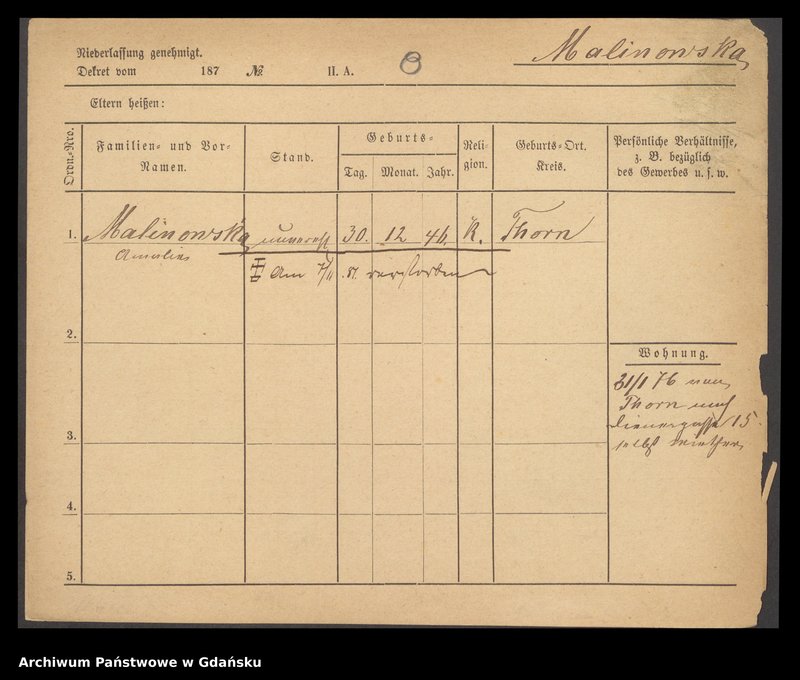 Niederlassung genehmigt.
Malinowska
Dekret vom 187 No. II. A. 8
Eltern heißen:
Ordn.-Nro.
Familien- und Vor-Namen.
Stand.
Geburts-
Tag. Monat. Jahr.
Reli-gion.
Geburts-Ort.
Kreis.
Persönliche Verhältnisse,
z. B. bezüglich
des Gewerbes u. s. w.
1. Malinowska unvereh 30. 12 46. K. Thorn
Amalie
Am 7/11 81. verstorben
2.
Wohnung.
31/1 76 von
Thorn nach
Dienergasse 15
selbst Miether
3.
4.
5.
Archiwum Państwowe w Gdańsku